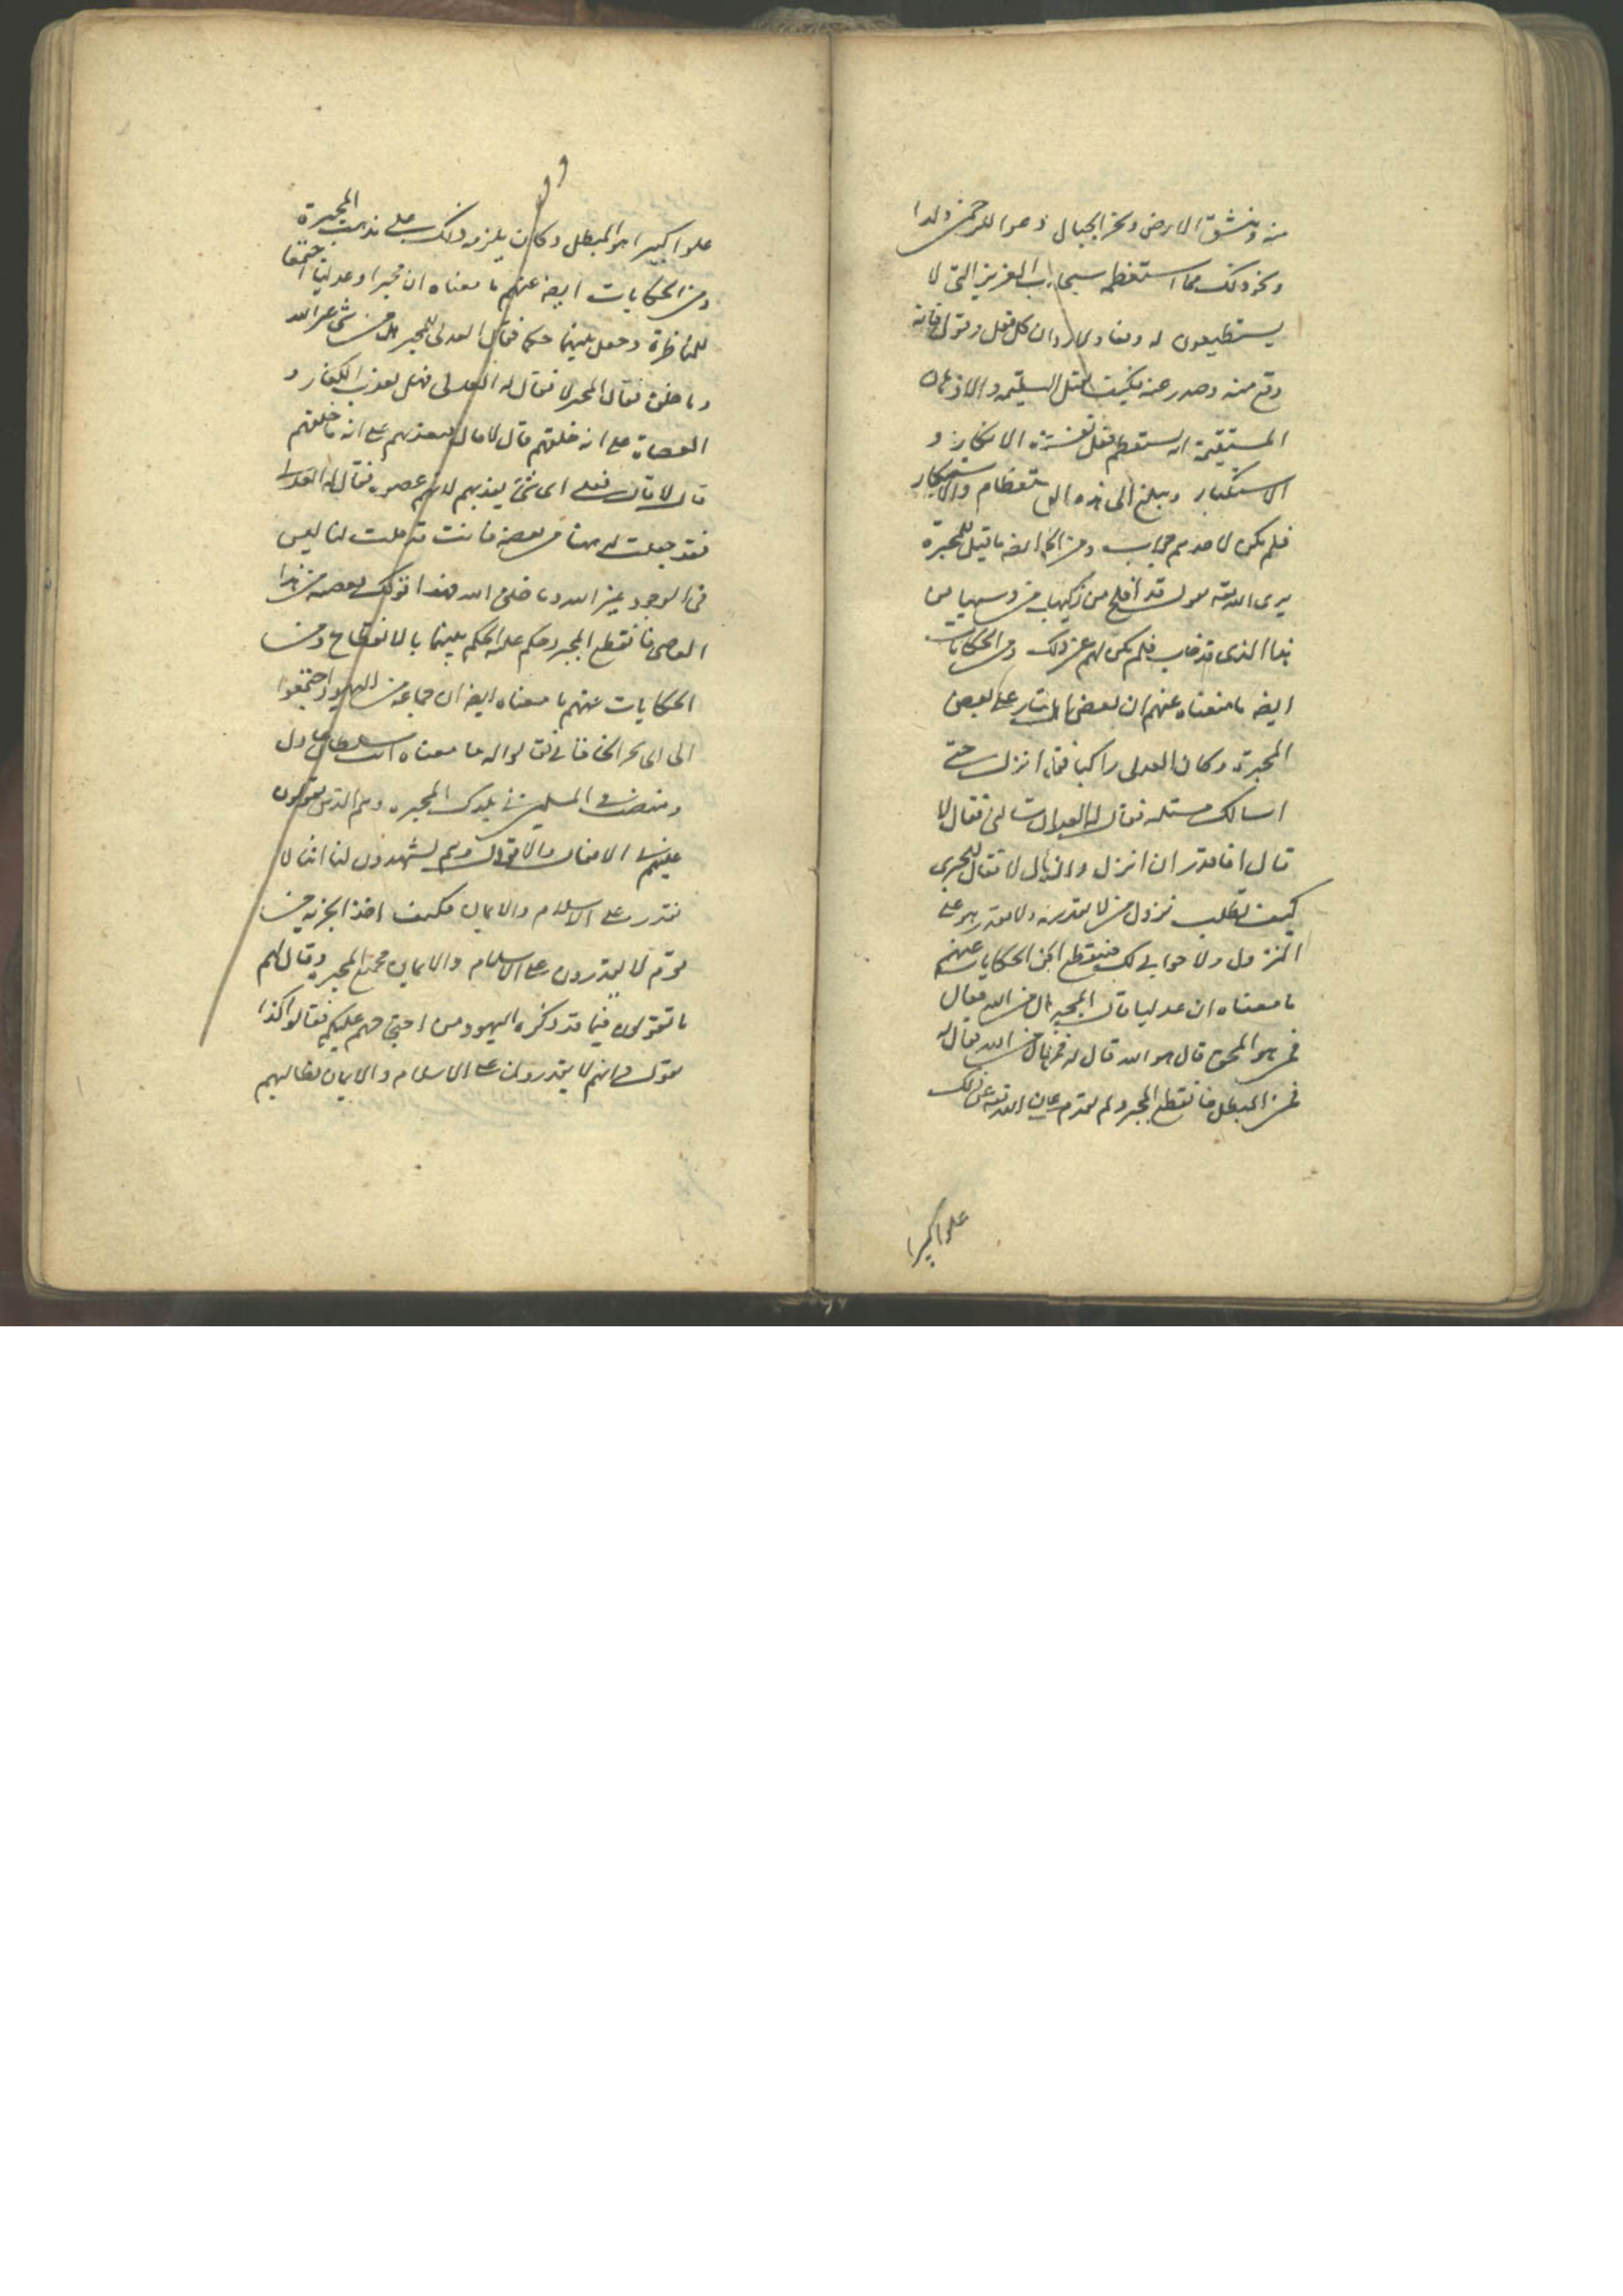 منه وتنشق الارض وتخر الجبال ان دعوا للرحمن ولدا
ونحو ذلك مما استعظمه سبحانه العزيز التى لا
يستطيعون له دفعا ولا ردا ان كل فعل وقول فانه
وقع منه وصدر عنه فكيف العقل السليمه والاذهان
المستقيمة ان يستعظم فعل نفسه هذه الانكار و
الاستكبار ويبلغ الى هذه الاستعظام والاستنكار
فلم يكن لاحدهم جواب ومن ايضه ما قيل للمجبرة
يرى الله تعه يقول قد افلح من زكيها من دسيها من
هذا الذى قد خاب فلم يكن لهم عن ذلك ومن الحكايات
ايضه ما معناه عنهم ان بعض على بعض
المجبرة وكان العدلى راكبا فقال انزل حتى
اسالك مسئله فقال له العدلى لى فقال لا
قال افاقدر ان انزل قال لا فقال للمجبرى
كيف تطلب نزول من لا يقدر هو على
النزول ولا جواب لك فينقطع ومن الحكايات عنهم
ما معناه ان عدليا قال المجبر من الله فقال
فمن هو المحق قال هو الله قال له فمن الله فقال له
فمن المبطل فانقطع المجبر ولم الله تعه عن ذلك
علوا كبيرا
علوا كبيرا هو المبطل وكان يلزمه ذلك على مذهب المجبرة
ومن الحكايات ايضه عنهم ما معناه ان مجبرا وعدليا اجتمعا
للمناظرة وجعل بينهما حكما فقال العدلى للمجبر هل من شئ غير الله
وما خلق فقال المجبر لا فقال له العدلى فهل يعذب الكفار و
العصاة على انه خلقهم قال لا قال فيعذبهم على انه ما خلقهم
قال لا قال فعلى اى شئ يعذبهم قال لانهم عصوه فقال له العدلى
فقد جعلت له هنا من يعصه فانت قد قلت لنا ليس
فى الوجود غير الله وما خلق الله فهذا قولك يعصه من هذا
العاصى فانقطع المجبر وحكم عليه الحكم بينهما بالانقطاع ومن
الحكايات عنهم ما معناه ايضه ان جماعة من اليهود اجتمعوا
الى ابى بحر الخاقانى فقالوا له ما معناه انت سلطان عادل
ومنصف وفى المسلمين فى بلدك المجبره وهم الذين يعولون
عليهم فى الافعال والاقوال وهم يشهدون لنا اننا لا
نقدر على الاسلام والايمان فكيف اخذ الجزيه من
قوم لا يقدرون على الاسلام والايمان فجمع المجبره وقال لهم
ما تقولون فيما قد ذكره اليهود من احتجاجهم عليكم فقالوا كذا
نقول وانهم لا يقدرون على الاسلام والايمان فطالبهم